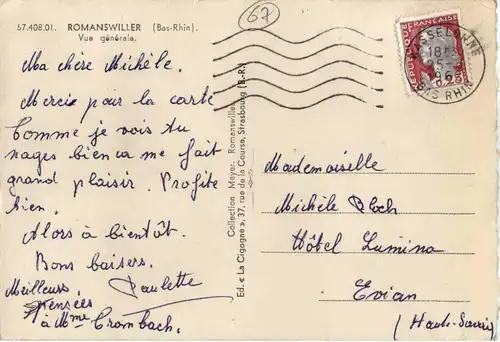 67.408.01. ROMANSWILLER (Bas-Rhin).
Vue générale.
67
Ma chère Michèle.
Merci pour la carte
Comme je vois tu
nages bien ca me fait
grand plaisir. Profite
bien.
Alors à bientôt.
Bons baisers.
Paulette
Meilleurs
Pensées
à Mme Crombach.
Collection Meyer, Romanswiller
Ed. « La Cigogne », 37, rue de la Course, Strasbourg (B.-R.)
REPUBLIQUE FRANÇAISE
0,25
WASSELONNE
18H
BAS RHIN
Mademoiselle
Michèle Bloch
Hôtel Lumina
Evian
(Haute-Savoie)